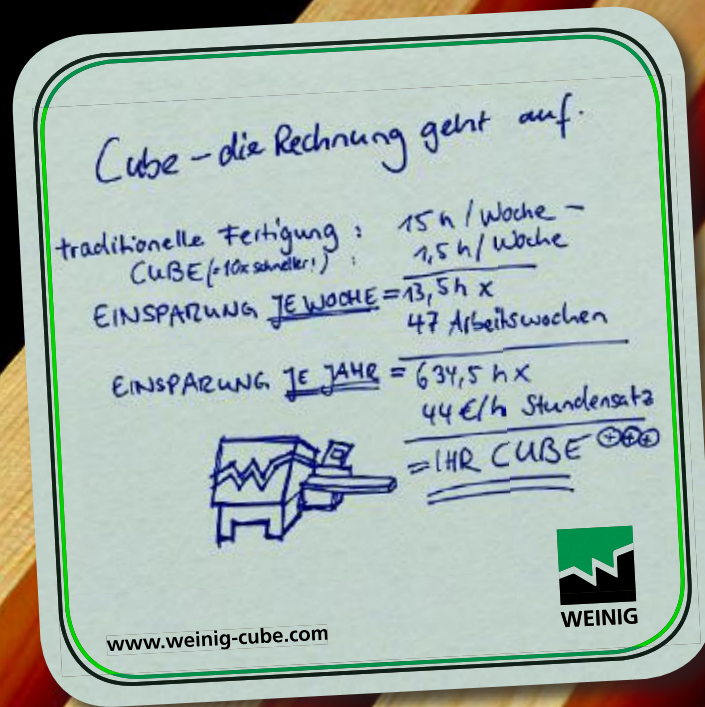 Cube – die Rechnung geht auf.
traditionelle Fertigung : 15 h / Woche –
CUBE (=10x schneller!) : 1,5 h / Woche
EINSPARUNG JE WOCHE = 13,5 h x
47 Arbeitswochen
EINSPARUNG JE JAHR = 634,5 h x
44 €/h Stundensatz
= IHR CUBE +++
WEINIG
www.weinig-cube.com